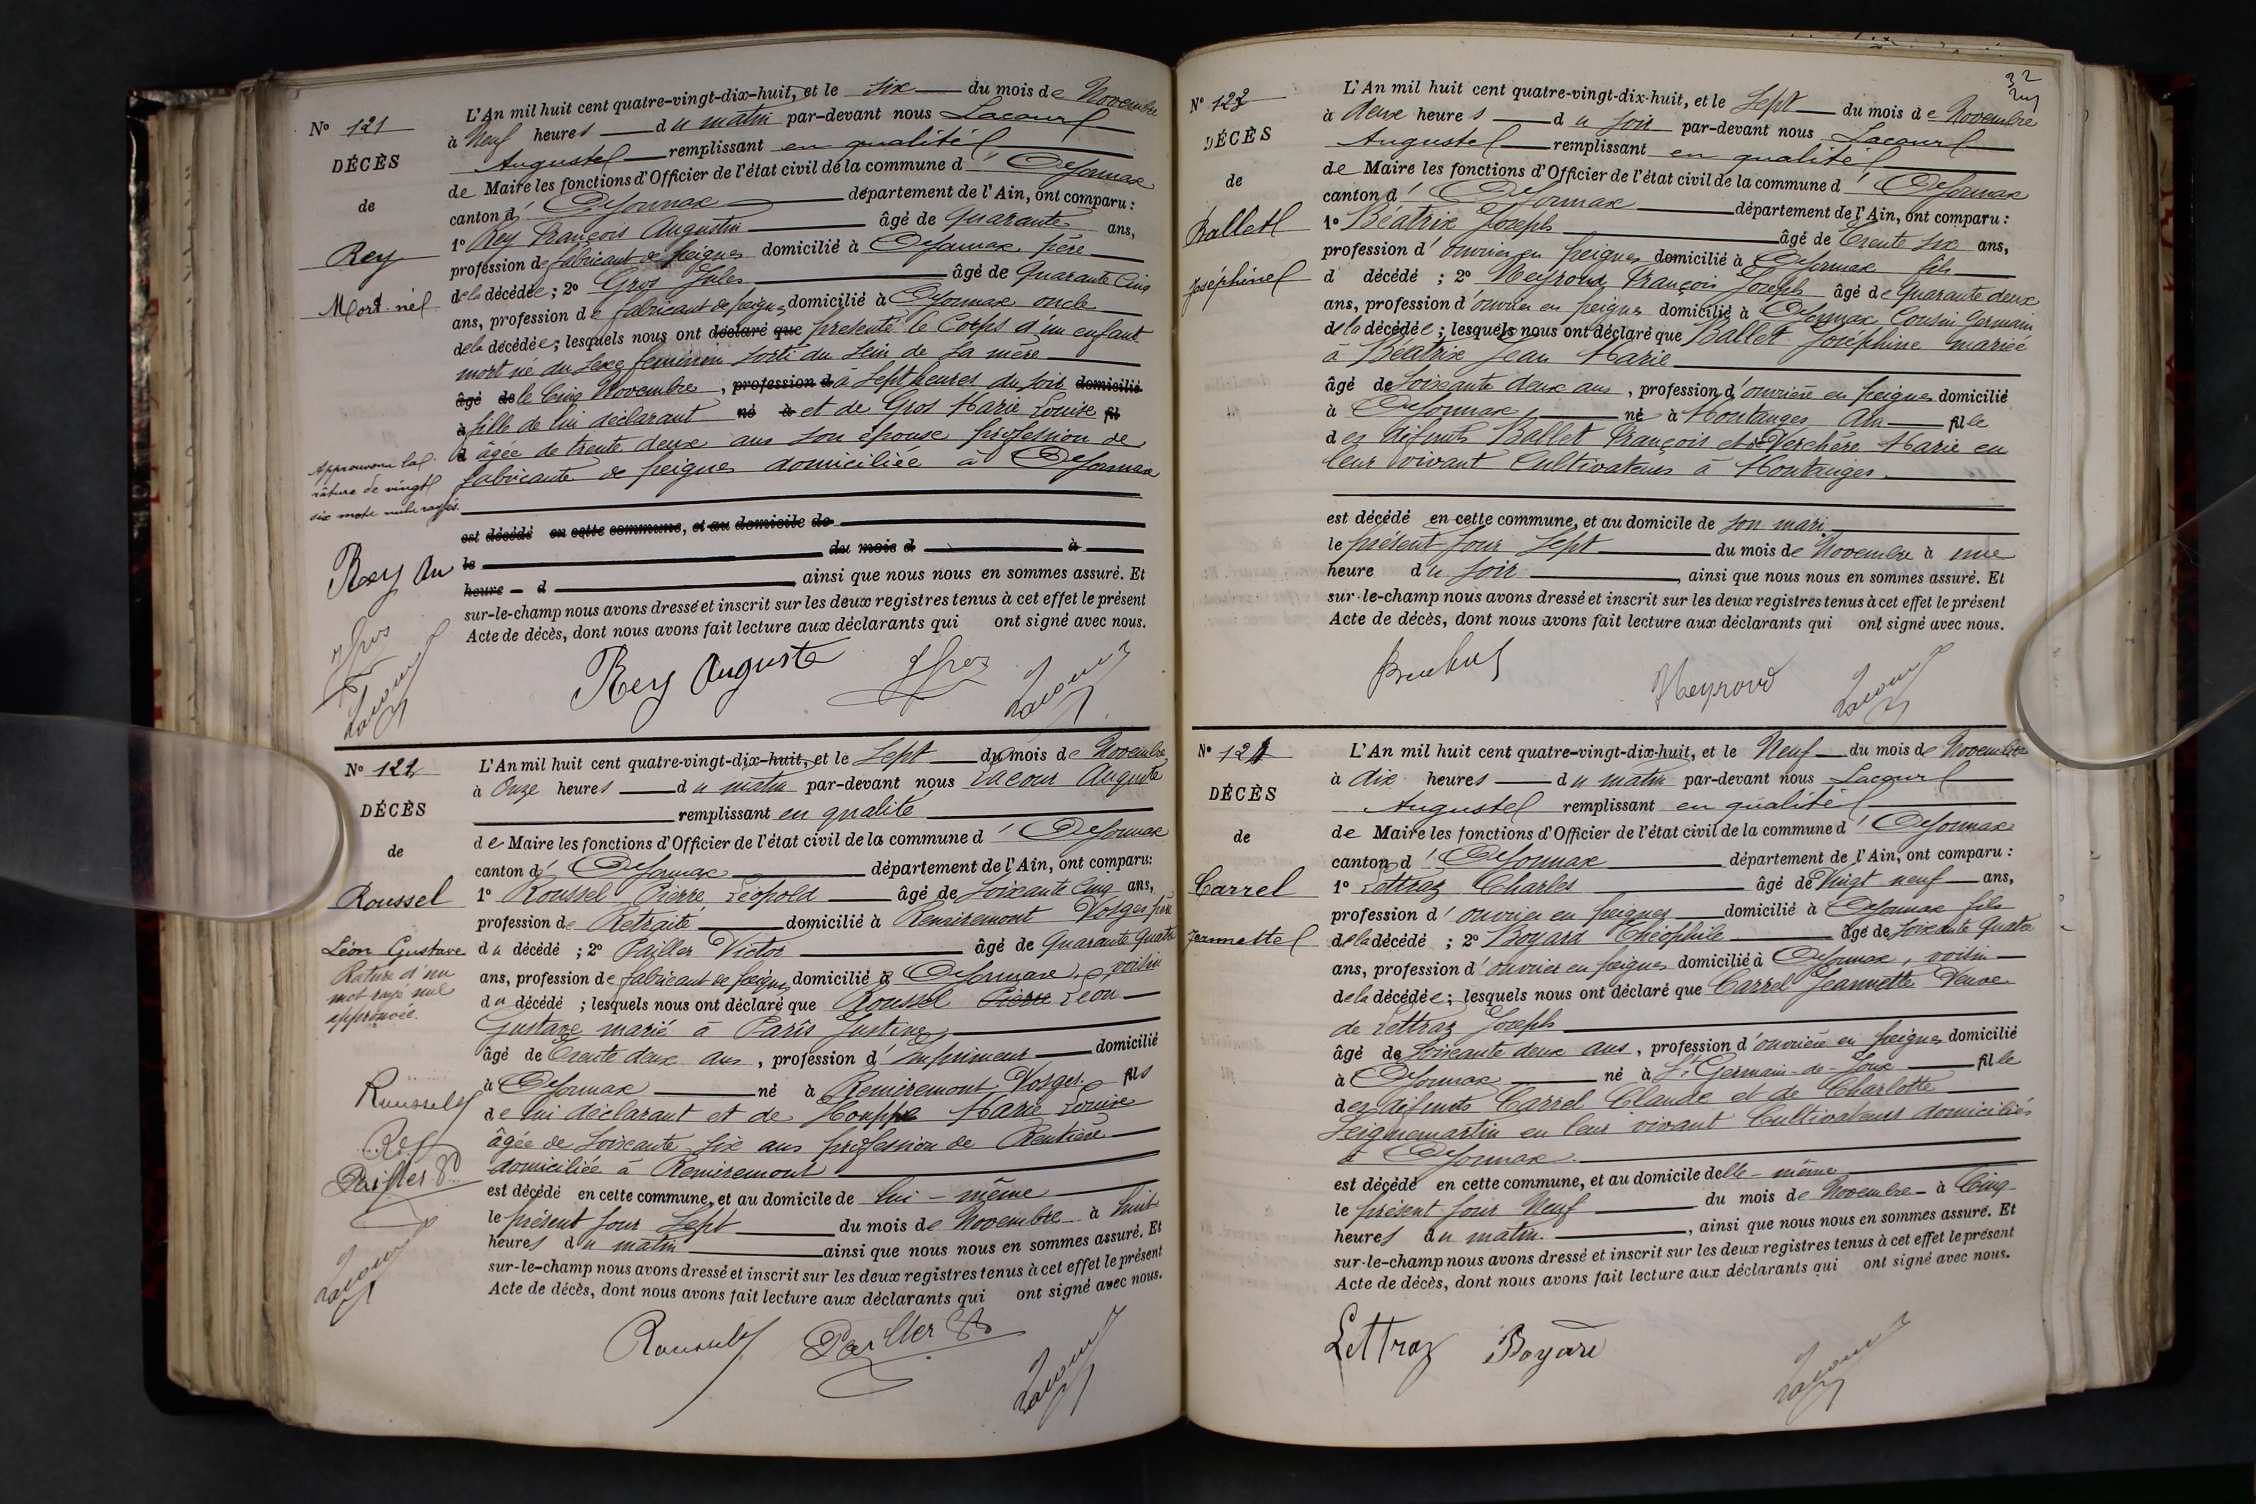 N° 121
DÉCÈS
de
Rey
Mort-né
L'An mil huit cent quatre-vingt-dix-huit, et le six du mois de Novembre
à Neuf heures du matin par-devant nous Lacour
Auguste remplissant en qualité
de Maire les fonctions d'Officier de l'état civil de la commune d'Oyonnax
canton d'Oyonnax département de l'Ain, ont comparu :
1° Rey François Augustin âgé de quarante ans,
profession de fabricant de peignes domicilié à Oyonnax père
de la décédée ; 2° Gros Jules âgé de Quarante Cinq
ans, profession de fabricant de peignes domicilié à Oyonnax oncle
de la décédée ; lesquels nous ont déclaré que présenté le Corps d'un enfant
mort né du sexe féminin sorti du sein de sa mère
âgé de le Cinq Novembre, profession d à Sept heures du soir domicilié
à fille de lui déclarant né à et de Gros Marie Louise fil
d âgée de trente deux ans son épouse profession de
fabricante de peignes domiciliée à Oyonnax
Approuvons la
râture de vingt
six mots nuls rayés.
est décédé en cette commune, et au domicile de
le du mois d à
heure d ainsi que nous nous en sommes assuré. Et
sur-le-champ nous avons dressé et inscrit sur les deux registres tenus à cet effet le présent
Acte de décès, dont nous avons fait lecture aux déclarants qui ont signé avec nous.
Rey Au
JGros
Lacour
Rey Auguste JGros Lacour
N° 122
DÉCÈS
de
Roussel
Léon Gustave
Rature d'un
mot rayé nul
approuvée.
L'An mil huit cent quatre-vingt-dix-huit, et le Sept du mois de Novembre
à Onze heures du matin par-devant nous Lacour Auguste
remplissant en qualité
de Maire les fonctions d'Officier de l'état civil de la commune d'Oyonnax
canton d'Oyonnax département de l'Ain, ont comparu:
1° Roussel Pierre Léopold âgé de Soixante Cinq ans,
profession de Retraité domicilié à Remiremont Vosges père
du décédé ; 2° Pailler Victor âgé de Quarante Quatre
ans, profession de fabricant de peignes domicilié à Oyonnax, voisin
du décédé ; lesquels nous ont déclaré que Roussel Pierre Léon
Gustave marié à Paris Justine
âgé de Trente deux ans, profession d'Imprimeur domicilié
à Oyonnax né à Remiremont Vosges. fils
de lui déclarant et de Houppe Marie Louise
âgée de Soixante-six ans profession de Rentière
domiciliée à Remiremont
est décédé en cette commune, et au domicile de lui-même
le présent jour Sept du mois de Novembre à huit
heures du matin ainsi que nous nous en sommes assuré. Et
sur-le-champ nous avons dressé et inscrit sur les deux registres tenus à cet effet le présent
Acte de décès, dont nous avons fait lecture aux déclarants qui ont signé avec nous.
Roussel
Pailler
Lacour
Roussel Pailler Lacour
32
N° 123
DÉCÈS
de
Ballet
Joséphine
L'An mil huit cent quatre-vingt-dix-huit, et le Sept du mois de Novembre
à deux heures du soir par-devant nous Lacour
Auguste remplissant en qualité
de Maire les fonctions d'Officier de l'état civil de la commune d'Oyonnax
canton d'Oyonnax département de l'Ain, ont comparu :
1° Béatrix Joseph âgé de Trente six ans,
profession d'ouvrier en peignes domicilié à Oyonnax fils
d décédé ; 2° Meyroud François Joseph âgé de Quarante deux
ans, profession d'ouvrier en peignes domicilié à Oyonnax Cousin germain
de la décédée ; lesquels nous ont déclaré que Ballet Joséphine mariée
à Béatrix Jean Marie
âgé de Soixante deux ans, profession d'ouvrière en peignes domicilié
à Oyonnax né à Montanges Ain fille
des défunts Ballet François et de Verchère Marie en
leur vivant Cultivateurs à Montanges.
est décédé en cette commune, et au domicile de son mari
le présent jour Sept du mois de Novembre à une
heure du soir, ainsi que nous nous en sommes assuré. Et
sur-le-champ nous avons dressé et inscrit sur les deux registres tenus à cet effet le présent
Acte de décès, dont nous avons fait lecture aux déclarants qui ont signé avec nous.
Meyroud Lacour
N° 124
DÉCÈS
de
Carrel
Jeannette
L'An mil huit cent quatre-vingt-dix-huit, et le Neuf du mois de Novembre
à dix heures du matin par-devant nous Lacour
Auguste remplissant en qualité
de Maire les fonctions d'Officier de l'état civil de la commune d'Oyonnax
canton d'Oyonnax département de l'Ain, ont comparu :
1° Lettraz Charles âgé de Vingt neuf ans,
profession d'ouvrier en peignes domicilié à Oyonnax fils
de la décédé ; 2° Boyard Théophile âgé de Soixante Quatre
ans, profession d'ouvrier en peignes domicilié à Oyonnax, voisin
de la décédée ; lesquels nous ont déclaré que Carrel Jeannette Veuve
de Lettraz Joseph
âgé de Soixante deux ans, profession d'ouvrière en peignes domicilié
à Oyonnax né à St Germain-de-Joux fille
des défunts Carrel Claude et de Charlotte
Seignemartin en leur vivant Cultivateurs domiciliés
à Oyonnax.
est décédé en cette commune, et au domicile delle-même
le présent jour Neuf du mois de Novembre à Cinq
heures du matin., ainsi que nous nous en sommes assuré. Et
sur-le-champ nous avons dressé et inscrit sur les deux registres tenus à cet effet le présent
Acte de décès, dont nous avons fait lecture aux déclarants qui ont signé avec nous.
Lettraz Boyard Lacour